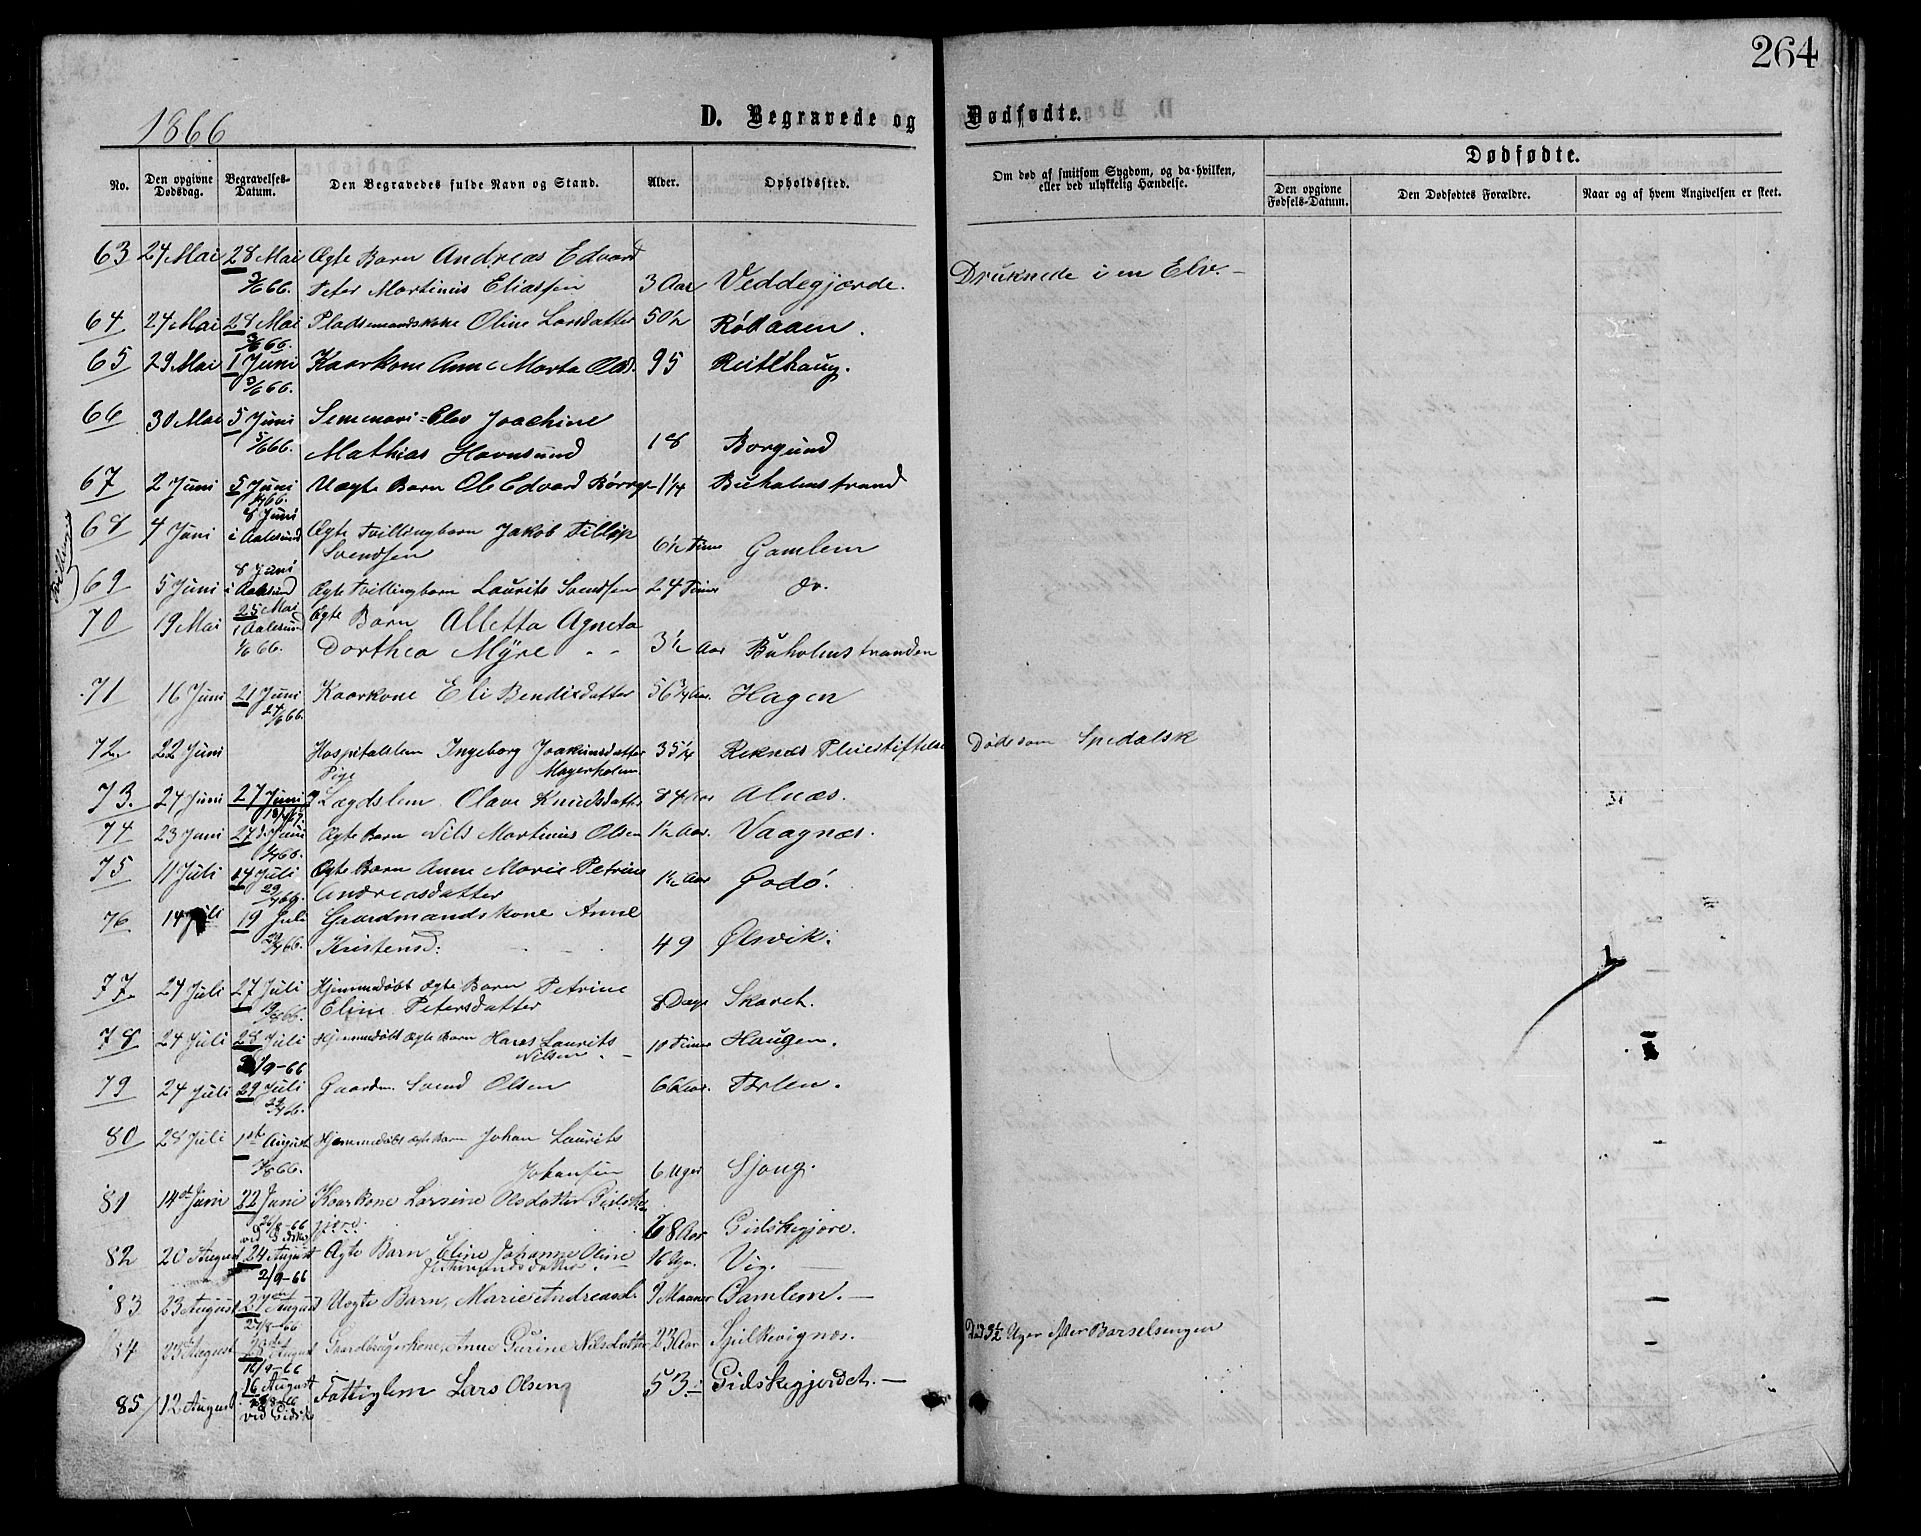 264
1866
D. Begravede og Dødfødte.
Dødfødte.
No.
Den opgivne Dødsdag.
Begravelses-Datum.
Den Begravedes fulde Navn og Stand.
Alder.
Opholdssted.
Om død af smitsom Sygdom, og da hvilken, eller ved ulykkelig Hændelse.
Den opgivne Fødsels-Datum.
Den Dødfødtes Forældre.
Naar og af hvem Angivelsen er skeet.
63 24 Mai 28 Mai Ægte Barn Andreas Edvard
Peter Martinus Eliassen 3 Aar Veddegjerde. Druknede i en Elv. -
64 24 Mai 28 Mai Pladsmandskone Oline Larsdatter 50½ Rødaaen.
65 29 Mai 1 Juni Kaarkone Anne Marta Olsd. 95 Reitlhaug.
66 30 Mai 5 Juni Seminari-Elev Joachine
5/6 66. Mathias Havnsund 18 Borgund
67 2 Juni 5 Juni Uægte Barn Ole Edvard 1¼ Buholmstrand
Tvillinger
68 4 Juni 8 Juni i Aalesund Ægte Tvillingbarn Jakob Fillip
Svendsen 6½ Timer Gamlem
69 5 Juni 8 Juni i Aalesund Ægte Tvillingbarn Laurits Svendsen 24 Timer do.
70 19 Mai 25 Mai i Aalesund Ægte Barn Alletta Agneta
Dorthea Myre - - 3½ Aar Buholmstranden
71 16 Juni 21 Juni Kaarkone Eli Bendixdatter 56¾ Aar. Hagen
72. 22 Juni Hospitalslem Ingeborg Joakimsdatter 35¼ Reknes Pleiestiftelse Døde som Spedalsk
Pige Mayerholm
73. 24 Juni 27 Juni Lægdslem Olave Knudsdatter 84 Aar Alnæs.
74 23 Juni 27de Juni Ægte Barn Nils Martinus Olsen 1½ Aar. Vaagnæs.
75 11 Juli 14 Juli Ægte Barn Anne Marie Petrine
Andreasdatter 1½ Aar Godø.
76 14 Juli 19 Juli Gaardmandskone Anne
Kristensd. 49 Ølsvik.
77. 24 Juli 27 Juli Hjemmedøbt Ægte Barn Petrine
Eline Petersdatter 8 Dage Skaret.
78 24 Juli 28 Juli Hjemmedøbt Ægte Barn Hans Laurits
Nilsen. - 10 Timer Haugen.
79 24 Juli 29 Juli Gaardm. Svend Olsen 66 Aar.
80 28 Juli 1ste August Hjemmedøbt Ægte Barn Johan Laurits
Johansen 6 Uger Sjong.
81 14de Juni 22 Juni Kaarkone Larsine Olsdatter Gidske-
26/8-66 ved Gidske gjere. 68 Aar Gidskegjøre.
82 20 August 24 August Ægte Barn, Eline Johanne Oline
2/9-66 16 Ugr. Vig. -
83 23 August 27de August Uægte Barn, Marie Andreasd. 9 Maaner Gamlem. -
84 23de August 28de August Gaardbrugerkone, Anne Gurine Nilsdatter 23 Aar Spilkevignæs. Død 3½ Uger efter Barselsengen
16/9-66
85 12 August 16 August Fattiglem Lars Olsen 53 Gidskegjerdet. -
ved Gidske